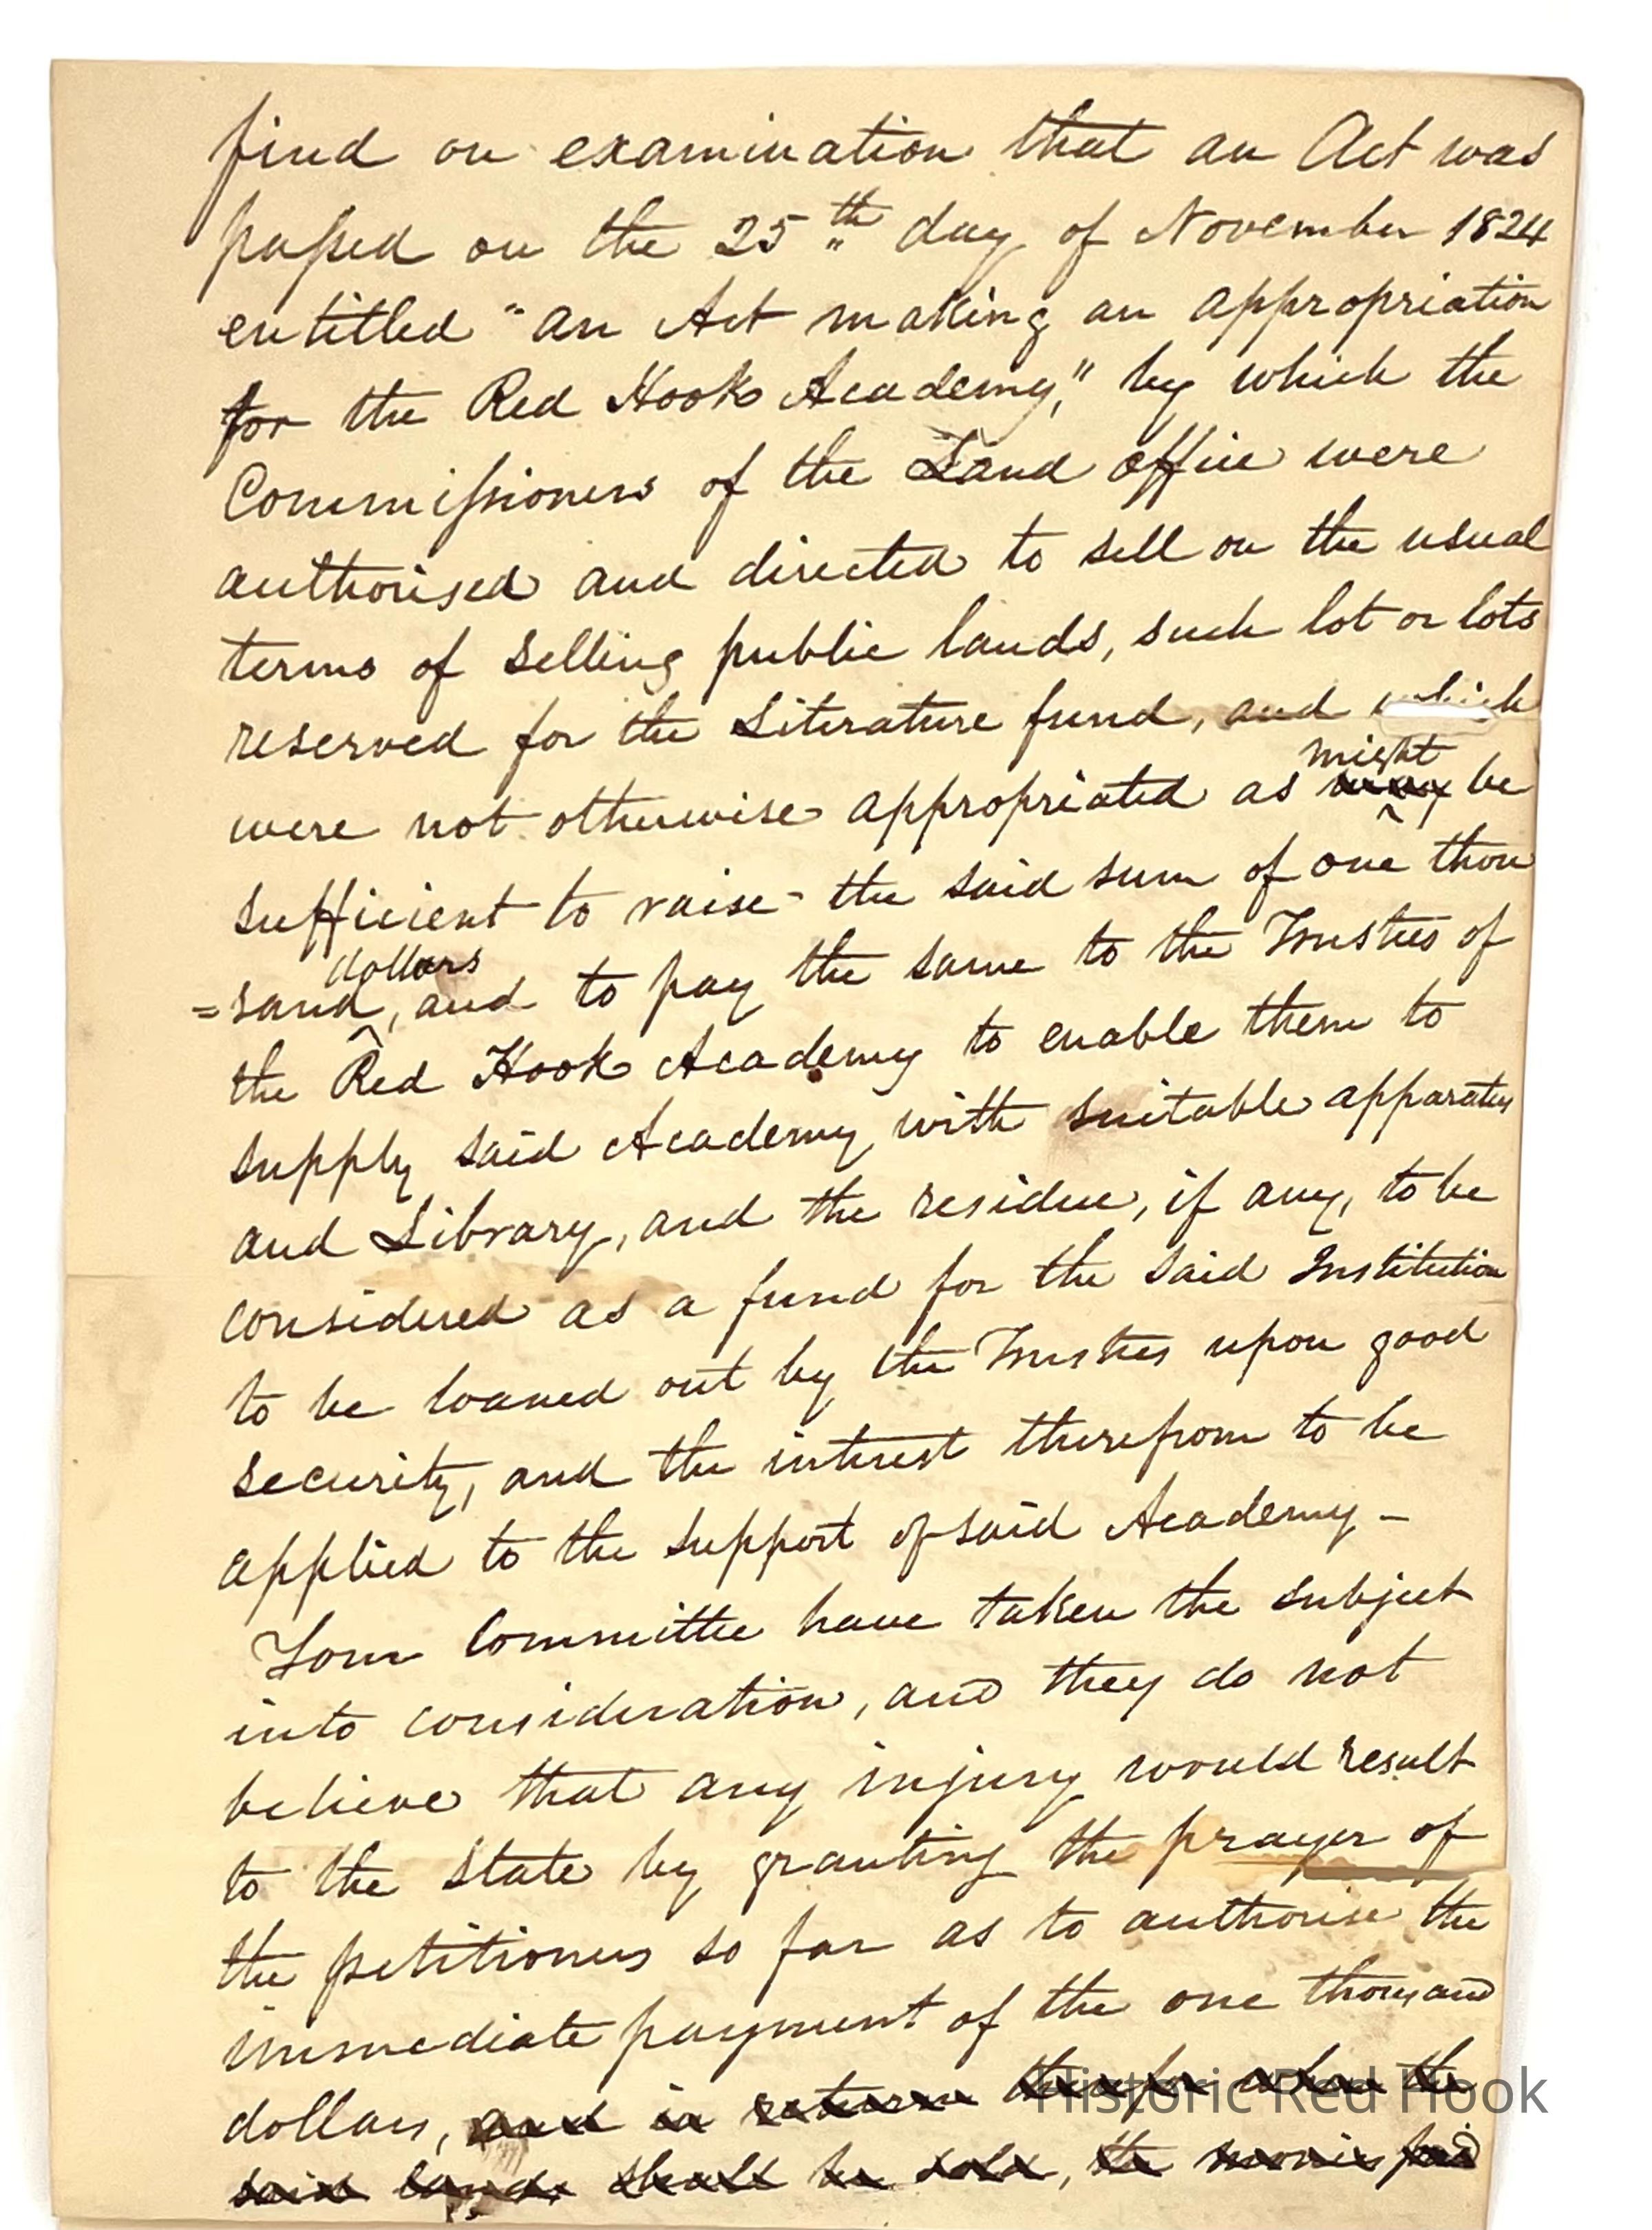 find on examination that an Act was
paſsed on the 25th day of November 1824
entitled "an Act making an appropriation
for the Red Hook Academy," by which the
Commiſsioners of the Land office were
authorised and directed to sell on the usual
terms of selling public lands, such lot or lots
reserved for the Literature fund, and which
might
were not otherwise appropriated as may be
sufficient to raise the said sum of one thou
dollars
=sand, and to pay the same to the Trustees of
the Red Hook Academy to enable them to
supply said Academy with suitable apparatus
and Library, and the residue, if any, to be
considered as a fund for the said Institution
to be loaned out by the Trustees upon good
security, and the interest therefrom to be
applied to the support of said Academy –
Your Committee have taken the subject
into consideration, and they do not
believe that any injury would result
to the State by granting the prayer of
the petitioners so far as to authorise the
immediate payment of the one thousand
dollars, and in return when the
said lands shall be sold, the monies paid
Historic Red Hook